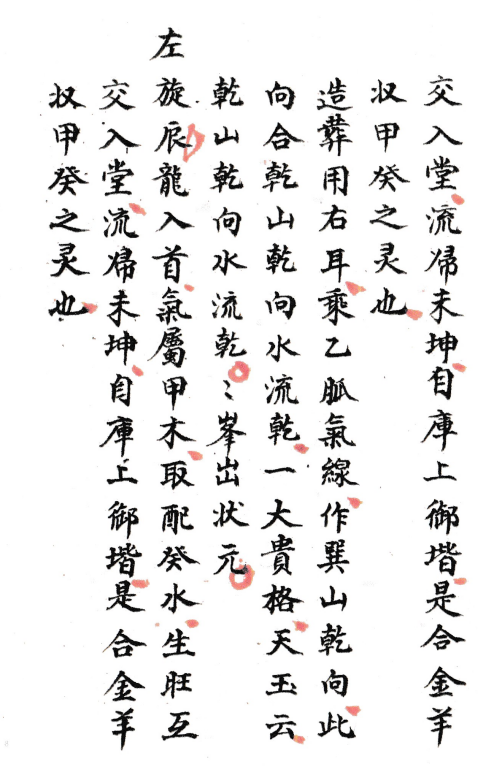 交入堂流㷌未坤自庫上御堦是合金羊
収甲癸之灵也
造葬用右耳乘乙脈氣線作巽山乾向此
向合乾山乾向水流乾一大貴格天玉云
乾山乾向水流乾〻峯出状元
左旋辰龍入首氣屬甲木取配癸水生旺互
交入堂流㷌未坤自庫上御堦是合金羊
収甲癸之灵也